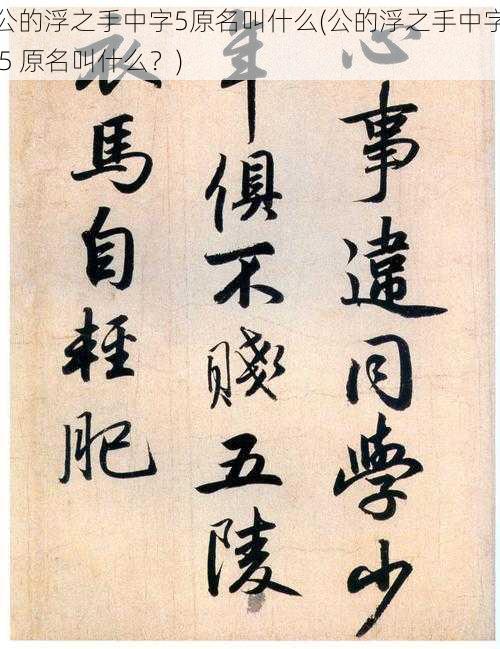 公的浮之手中字5原名叫什么(公的浮之手中字
5 原名叫什么？)
心事違同學少
年俱不賤五陵
衣馬自輕肥